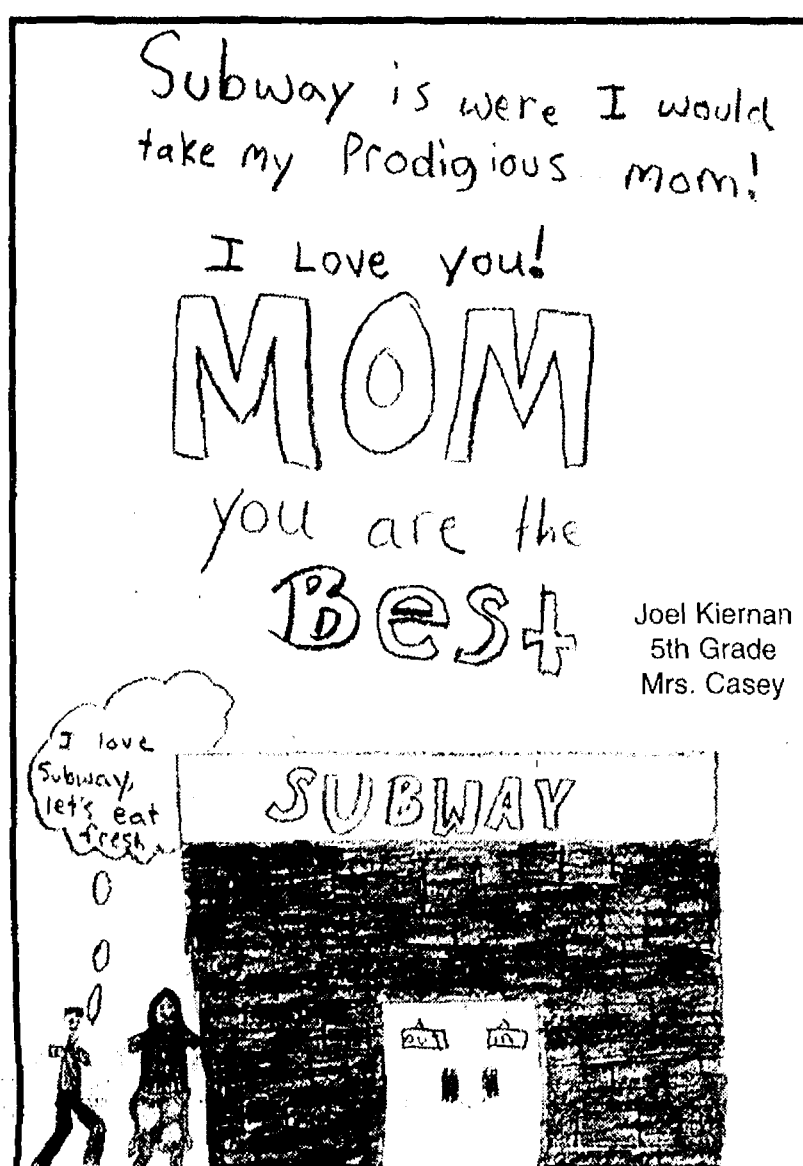 Subway is were I would
take my Prodigious mom!
I Love you!
MOM
you are the
Best
Joel Kiernan
5th Grade
Mrs. Casey
I love
Subway,
let's eat
fresh
SUBWAY
out in